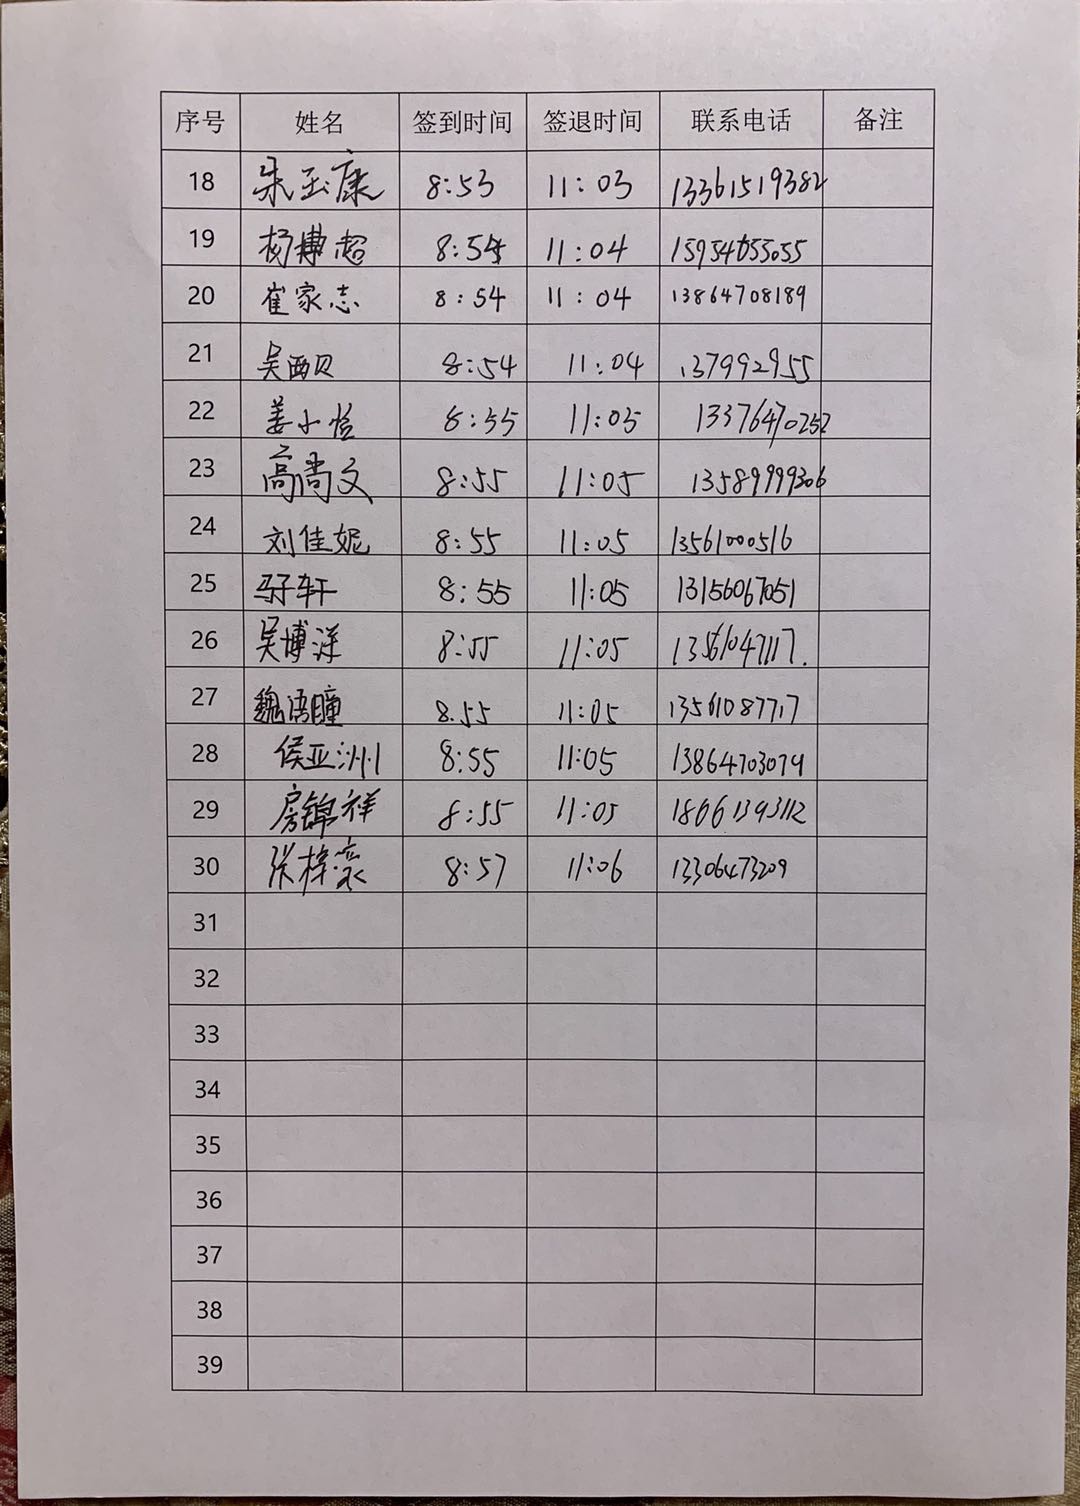 序号 姓名 签到时间 签退时间 联系电话 备注
18 朱玉康 8:53 11:03 13361519382
19 杨博超 8:54 11:04 15954655055
20 崔家志 8:54 11:04 13864708189
21 吴西贝 8:54 11:04 137992955
22 姜小恺 8:55 11:05 13376470252
23 高尚文 8:55 11:05 13589999306
24 刘佳妮 8:55 11:05 13561000516
25 轩 8:55 11:05 13156067051
26 吴博洋 8:55 11:05 13561047117.
27 魏语瞳 8.55 11:05 13561087717
28 侯亚洲 8:55 11:05 13864703079
29 房锦祥 8:55 11:05 18661393112
30 张梓豪 8:57 11:06 13306473209
31
32
33
34
35
36
37
38
39